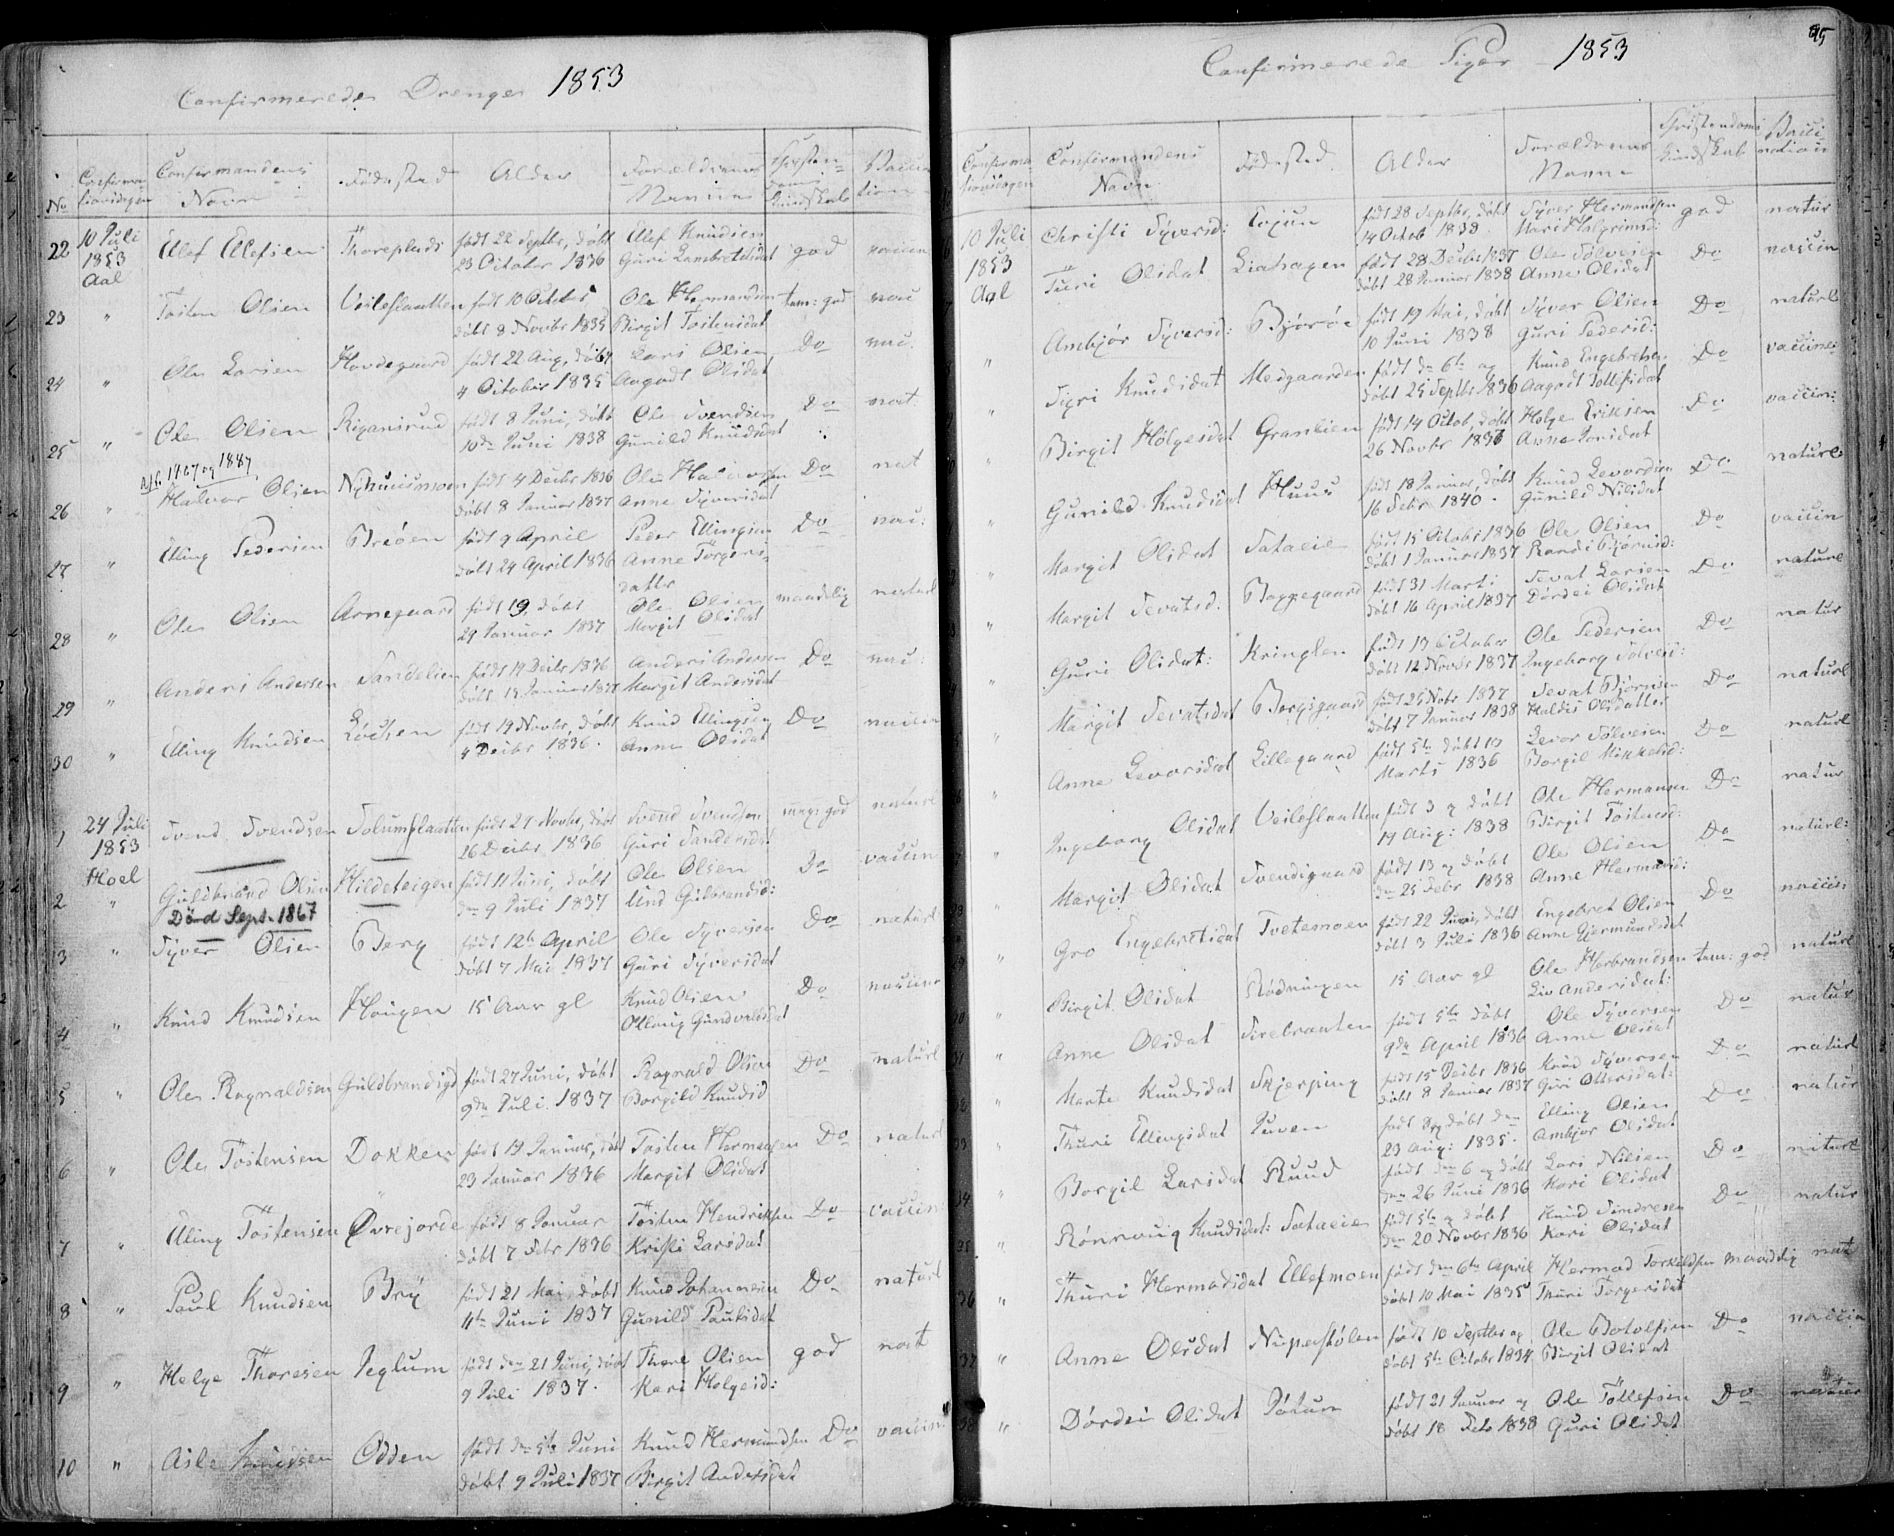 Confirmerede Drenge 1853
No
Confirmationsdagen
Confirmandens Navn
Fødested
Alder
Forældrenes Navne
Christendoms Kundskab
Vaccination
22 10 Juli 1853 Aal Ellef Ellefsen Thoreplads født 22 Septbr, døbt 23 Octobr 1836 Ellef Knudsen Guri Lambretsdat god vaccin
23 " Tosten Olsen Veileslaatten født 10 October døbt 8 Novbr 1835 Ole Hermandsen Birgit Tostensdat tem: god vac
24 " Ole Larsen Hovdegaard født 22 Aug, døbt 4 October 1835 Lars Olsen Aagodt Olsdat Do vac.
25 " Ole Olsen født 8 Juni, døbt 10de Juni 1838 Ole Svendsen Gunild Knudsdat Do nat.
26 " Halvor Olsen født 4 Decbr 1836 døbt 8 Januar 1837 Ole Halvorsen Anne Syversdat Do nat
27 " Elling Pedersen Breøen født 9 April døbt 24 April 1836 Peder Ellingsen Anne Torgersdatter Do vac:
28 " Ole Olsen Arnegaard født 19. døbt 29 Januar 1837 Ole Olsen Margit Olsdat maadelig naturl
29 " Anders Andersen Sandelien født 14 Decbr 1836 døbt 15 Januar 1837 Anders Andersen Margit Andersdat Do vac:
30 " Elling Knudsen født 19 Novbr, døbt 4 Decbr 1836. Knud Ellingsen Anne Olsdat Do vaccin
1 24 Juli 1853 Hoel Svend Svendsen Solumslaatten født 27 Novbr, døbt 26 Decbr 1836 Svend Svendsen Guri Sandersdat meg: god naturl
2 " Guldbrand Olsen Hildeteigen født 11 Juni, døbt den 9 Juli 1837 Ole Olsen Und Gulbrandsd: Do vaccin
Død Sept. 1867
3 " Syver Olsen Berg født 12te April døbt 7 Mai 1837 Ole Syversen Guri Syversdat Do naturl
4 " Knud Knudsen Hougen 15 Aar gl Knud Olsen Ollaug Gundvaldsdat Do vaccine
5 " Ole Ragnaldsen Guldbrandsgd født 27 Juni, døbt 9de Juli. 1837 Ragnard Olsen Borgild Knudsd Do naturl
6 " Ole Tostensen Dokken født 19 Januar, døbt 23 Januar 1836 Tosten Hermansen Margit Olsdat Do naturl
7 " Elling Tostensen Øvrejorde født 8 Januar døbt 7 Febr 1836 Tosten Hendriksen Kristi Larsdat Do vaccin
8 " Paul Knudsen Bry født 21 Mai, døbt 11te Juni 1837 Knud Johannesen Gunild Paulsdat Do naturl
9 " Helge Thoresen Jeglum født den 21 Juni, døbt 9 Juli 1837. Thore Olsen Kari Helgesd: god nat
10 " Asle Knudsen Odden født den 5te Juni døbt 9 Juli 1837 Knud Hermundsen Birgit Andersdat Do vaccin
Confirmerede Piger 1853
95
Confirmationsdagen
Confirmandens Navn
Fødested
Alder
Forældrenes Navne
Christendoms Kundskab
Vaccination
10 Juli 1853 Aal Christi Syversd: født 28 Septbr, døbt 14 Octob 1838 Syver Hermandsen Mari Halgrimsd: god natur
Turi Olsdat Liahagen født 28 Decbr 1837 døbt 28 Januar 1838 Ole Sølvesen Anne Olsdat Do vaccin
Ambjør Syversd: Bjørøe født 19 Mai, døbt 10 Juni 1838 Syver Olsen Guri Pedersd: Do naturl
" Sigri Knudsdat Medgaarden født dn 6te og døbt 25 Septbr 1836 Knud Engebretsen Aagodt Tollefsdat Do vaccine
" Birgit Holgesdat Granlien født 14 Octob, døbt 26 Novbr 1837 Holge Eriksen Anne Do vaccin:
" Gunild Knudsdat Huus født 18 Januar, døbt 16 Febr 1840. Knud Levordsen Gunild Nilsdat Do naturl
" Margit Olsdat Sataeie født 15 Octobr 1836 døbt 1 Januar 1837 Ole Olsen Randi Bjørnsd: Do vaccin
" Margit Sevatsd. Baggegaard født 31 Marts døbt 16 April 1837 Sevat Larsen Dordei Olsdat Do naturl
" Guri Olsdat: Kringlen født 13 October døbt 12 Novbr 1837 Ole Pedersen Ingeborg Solvesd: Do natur
" Margit Sevatsdat Borgegaard født 25 Nobr 1837 døbt 7 Januar 1838 Sevat Bjørnsen Haldis Olsdatter Do naturl
" Anne Levorsdat Lillegaard født 5te døbt 13 Marts 1836 Levor Sølvesen Borgil Mikkelsd: Do naturl
" Ingeborg Olsdat Veileslaatten født 3 og døbt 19 Aug: 1838 Ole Hermansen Birgit Tostensd: Do natur
" Margit Olsdat Svendsgaard født 13 og døbt dn 25 Febr 1838 Ole Olsen Anne Hermansd: Do naturl:
" Gro Engebretsdat Tvetemoen født 22 Juni, døbt døbt 3 Juli 1836 Engebret Olsen Anne Gjermundsdat Do vaccin
" Birgit Olsdat Rødningen 15 Aar gl Ole Herbrandsen Liv Andersdat: tem: god naturl
" Anne Olsdat Sirebraaten født 5te døbt 9de April 1836 Ole Syversen Anne Olsdat Do natur
" Marte Knudsdat Skjerping født 15 Decbr 1836 døbt 8 Januar 1837 Knud Syversen Guri Ottersdat: Do naturl
" Thuri Ellingsdat Juven født 8 og døbt den 23 Aug: 1835. Elling Olsen Ambjør Olsdat Do natur
" Borgil Larsdat Ruud født den 6 og døbt den 26 Juni 1836 Lars Nilsen Kari Olsdat Do naturl
" Rønnoug Knudsdat: Sataeie født 5te og døbt den 20 Novbr 1836 Knud Simdresen Kari Olsdat Do natur
" Thuri Hermodsdat Ellefmoen født den 6te April døbt 10 Mai 1835 Hermod Torkildsen Thuri Torgersdat maadelig nat
" Anne Olsdat født 10 Septbr og døbt 5te Octobr 1834 Ole Botolfsen Birgit Olsdat Do vaccin
" Dordei Olsdat født 21 Januar og døbt 18 Febr 1838 Ole Tollefsen Guri Olsdat Do